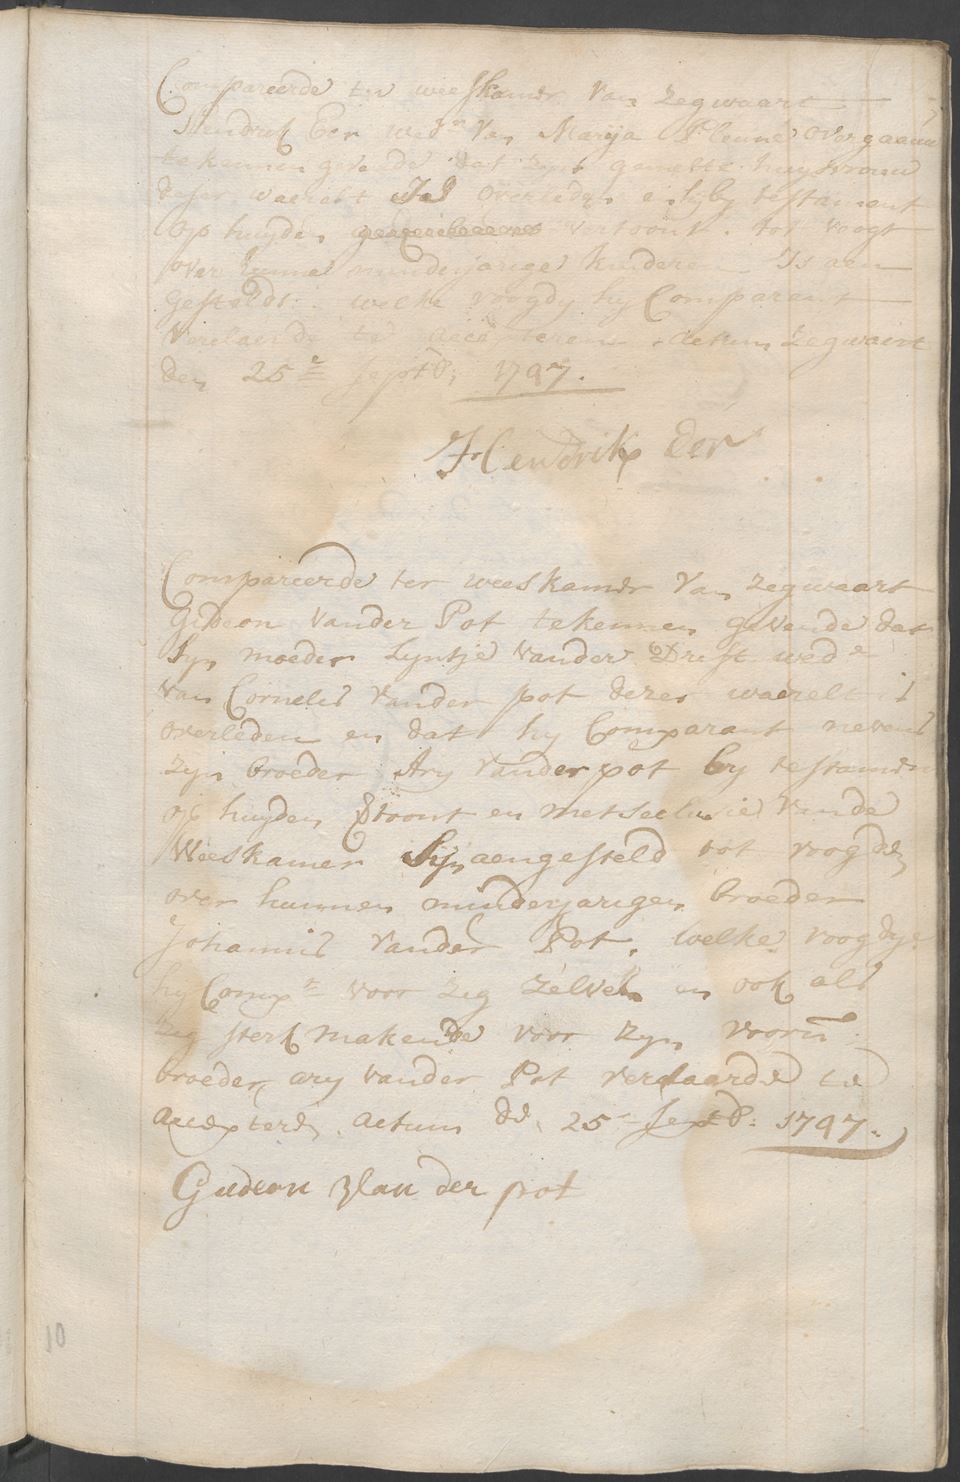 Compareerde ter weeskamer Van Zegwaart
Hendrik Eer wed.r Van Marija Pleune overgaauw
te kennen gevende dat zyn gemelte huysvrouw
deser waerelt Is overleden en hy by testament
op huyden vertoont. tot voogt
over hunne minderjarige kinderen Is aen
gesteldt. welke voogdy hy Comparant
Verclaerde te accepteren. actum Zegwaert
den 25e Septb: 1797.
Hendrik Eer
Compareerde ter weeskamer Van Zegwaart
Gideon Vander Pot te kennen gevende dat
Syn moeder Lyntje Vander Drift wede
van Cornelis Vander pot dezer waerelt is
overleden en dat hy Comparant nevens
zyn broeder Ary Vander pot by testament
op huyden vtoont en met seclusie Vande
Weeskamer Syn aengesteld tot voogden
over hunnen minderjarigen broeder
Johannis Vander Pot. welke voogdye
hy Compt voor zig zelven en ook als
zig sterk makende voor zyn voorn:
broeder ary vander Pot verclaarde te
accepteren. actum den 25e Septb: 1797.
Gudeon Van der pot
10